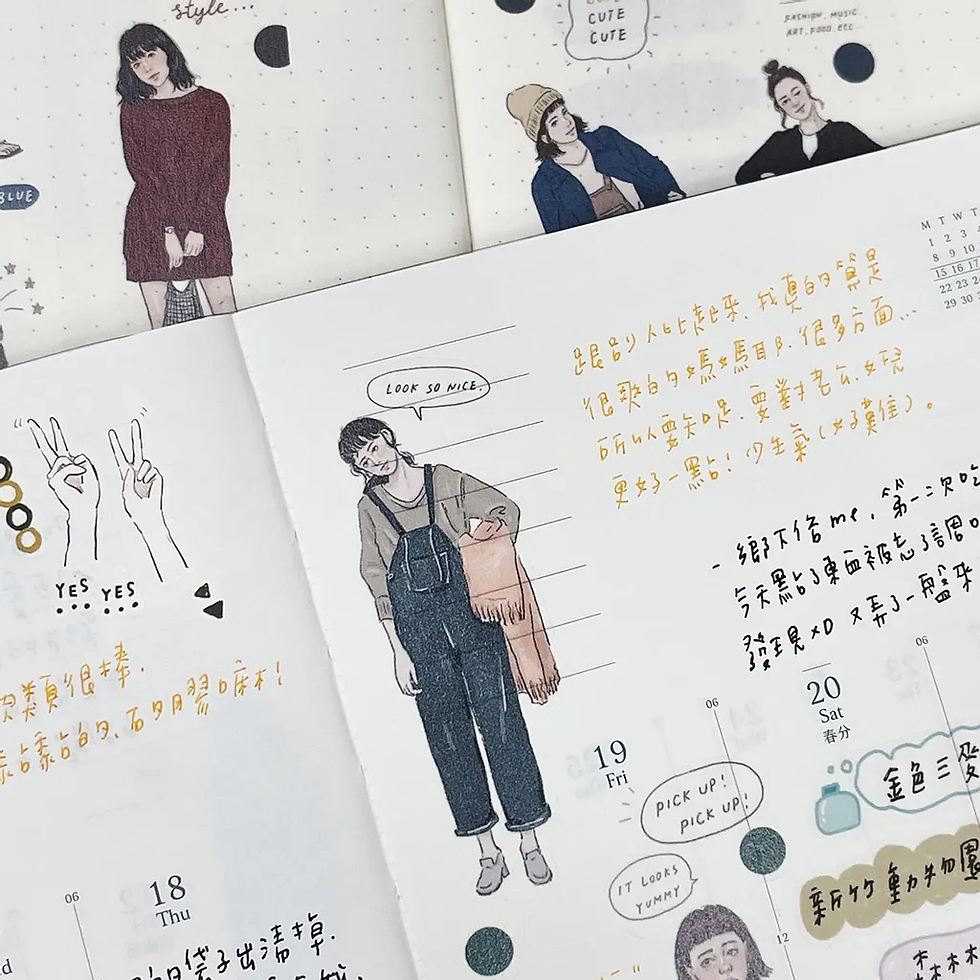 style...
CUTE
CUTE
FASHION. MUSIC.
ART. FOOD. ETC
BLUE
M T W T
1 2 3
8 9 10
15 16 17
22 23
29 30
LOOK SO NICE.
跟別人比起來、我真的算是
很爽的媽媽耶。很多方面...
所以要知足、要對老公、女兒
更好一點! 少生氣(好難)。
YES YES
- 鄉下俗me, 第一次吃
今天點了東西被忘了
發現XD 又弄了一盤來
類很棒.
18
Thu
06
19
Fri
06
20
Sat
春分
06
PICK UP!
PICK UP!
IT LOOKS
YUMMY
金色三麥
新竹動物園
12
袋子出清掉.